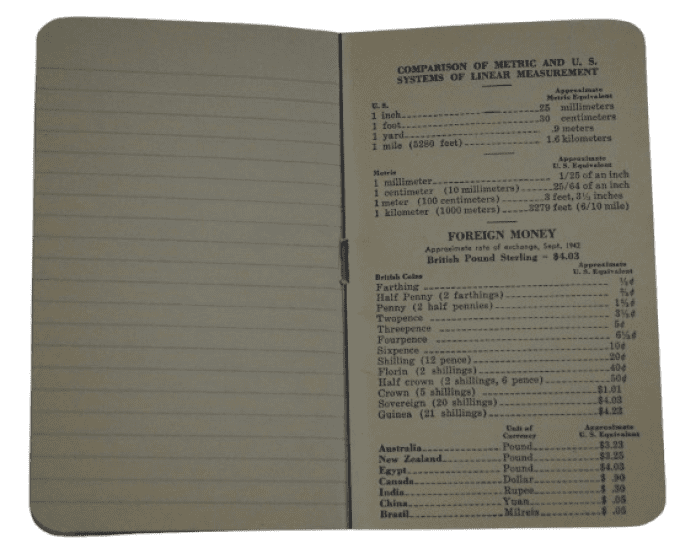 COMPARISON OF METRIC AND U. S.
SYSTEMS OF LINEAR MEASUREMENT
Approximate
Metric Equivalent
U. S.
1 inch 25 millimeters
1 foot 30 centimeters
1 yard .9 meters
1 mile (5280 feet) 1.6 kilometers
Approximate
U. S. Equivalent
Metric
1 millimeter 1/25 of an inch
1 centimeter (10 millimeters) 25/64 of an inch
1 meter (100 centimeters) 3 feet, 3½ inches
1 kilometer (1000 meters) 3279 feet (6/10 mile)
FOREIGN MONEY
Approximate rate of exchange, Sept. 1942
British Pound Sterling = $4.03
Approximate
U. S. Equivalent
British Coins
Farthing
Half Penny (2 farthings)
Penny (2 half pennies)
Twopence
Threepence 5¢
Fourpence
Sixpence 10¢
Shilling (12 pence) 20¢
Florin (2 shillings) 40¢
Half crown (2 shillings, 6 pence) 50¢
Crown (5 shillings) $1.01
Sovereign (20 shillings) $4.03
Guinea (21 shillings) $4.23
Unit of
Currency
Approximate
U. S. Equivalent
Australia Pound $3.23
New Zealand Pound $3.25
Egypt Pound $4.03
Canada Dollar $ .90
India Rupee $ .30
China Yuan
Brazil Milreis